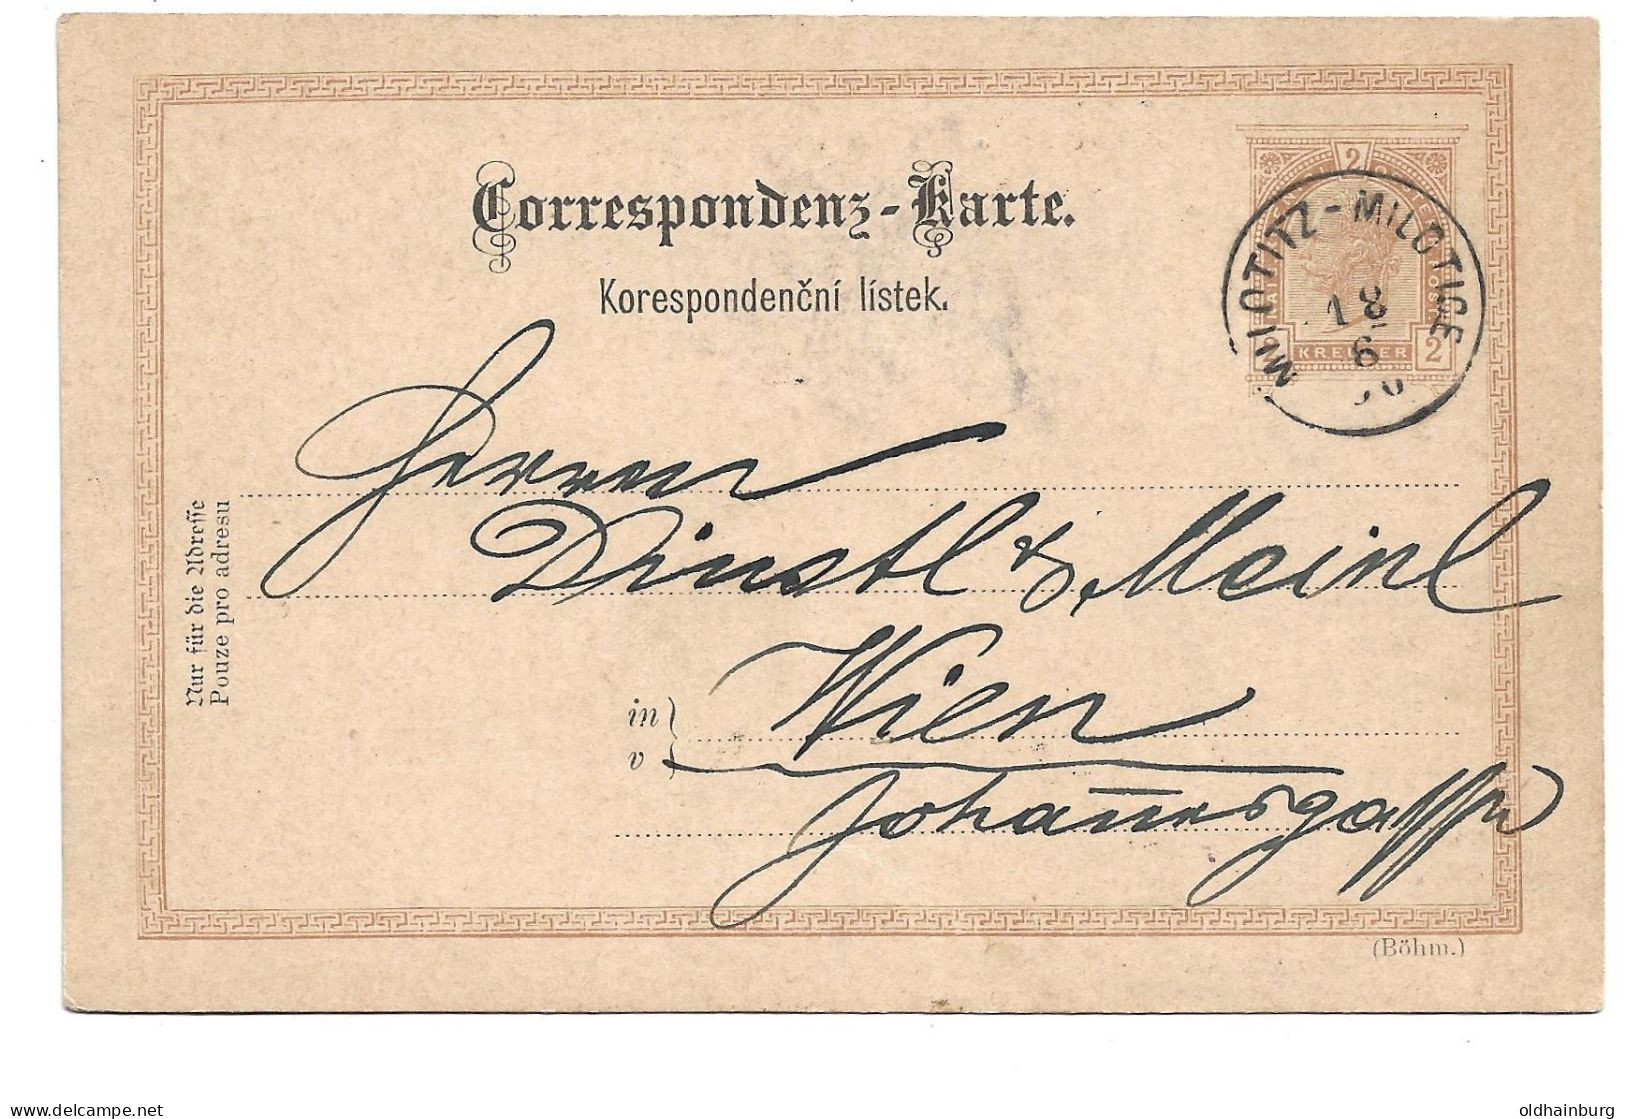 Correspondenz-Karte.
Korespondenční lístek.
2
KREUZER 2
MILOTITZ - MILOTICE
18
6
Nur für die Adresse
Pouze pro adresu
Herren
Dinstl & Meinl
in
v
Wien
Johannesgasse
(Böhm.)
delcampe.net
oldhainburg